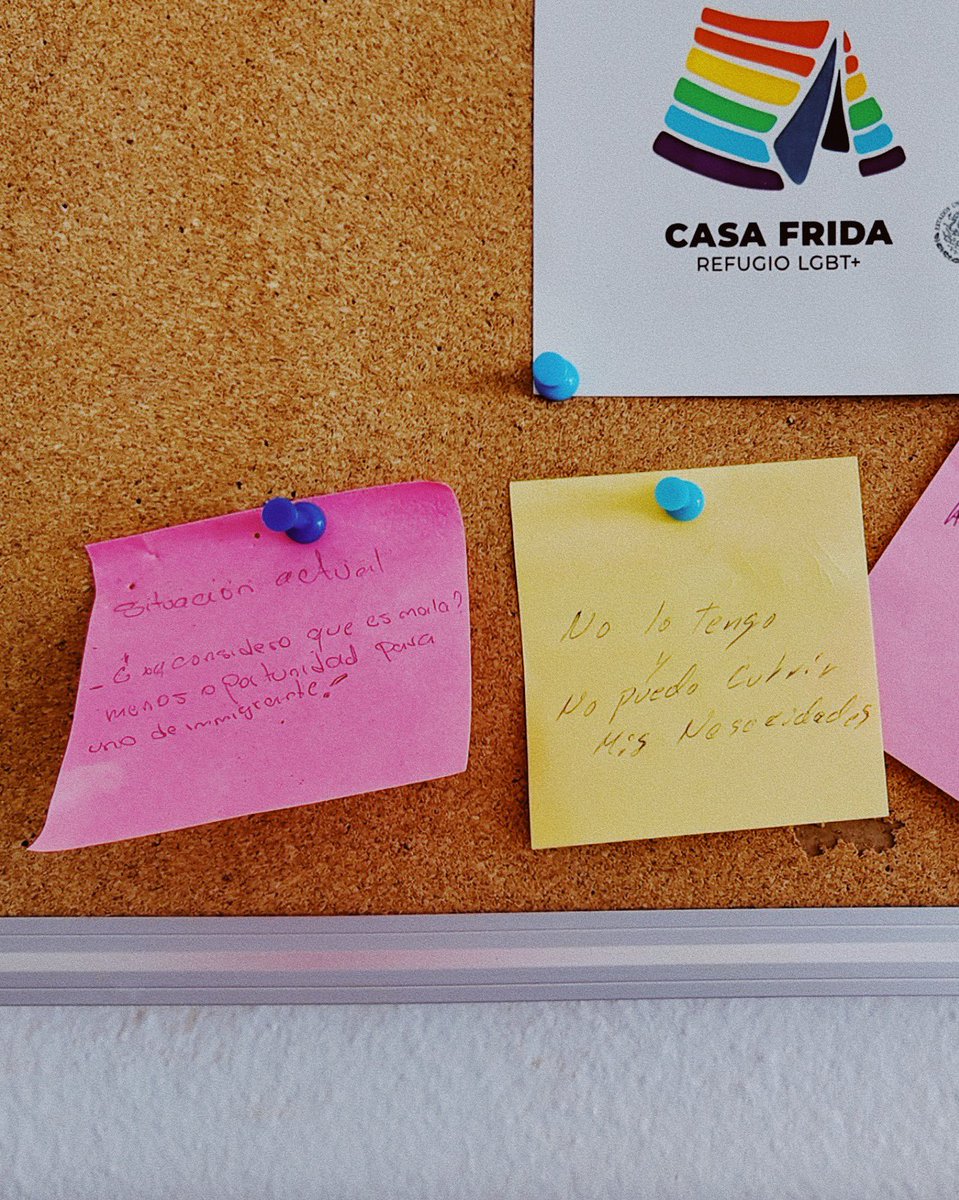 CASA FRIDA
REFUGIO LGBT+
situación actual
considero que es mala?
menos oportunidad para
uno de immigrante!
No lo tengo
y
No puedo Cubrir
Mis Nesecidades